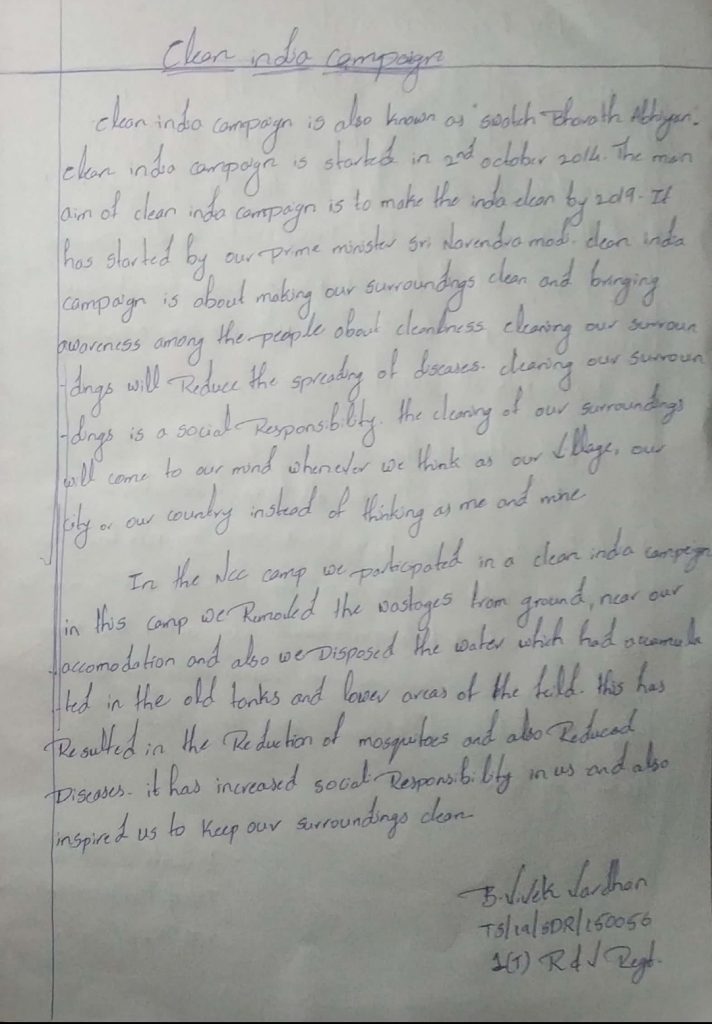 Clean india campaign
clean india campaign is also known as "swatch Bharath Abhiyan".
clean india campaign is started in 2nd october 2014. The main
aim of clean india campaign is to make the india clean by 2019. It
has started by our prime minister sri Narendra modi. clean india
campaign is about making our surroundings clean and bringing
awareness among the people about cleanliness. cleaning our surroun
-dings will Reduce the spreading of diseases. cleaning our surroun
-dings is a social Responsibility. the cleaning of our surroundings
will come to our mind whenever we think as our village, our
city or our country instead of thinking as me and mine.
In the Ncc camp we participated in a clean india campaign
in this camp we Removed the wastages from ground, near our
accomodation and also we Disposed the water which had accumula
-ted in the old tanks and lower areas of the feild. this has
Resulted in the Reduction of mosquitoes and also Reduced
Diseases. it has increased social Responsibility in us and also
inspired us to keep our surroundings clean.
B. Vivek Vardhan
TS/19/SDR/150056
1(T) R & V Regt.